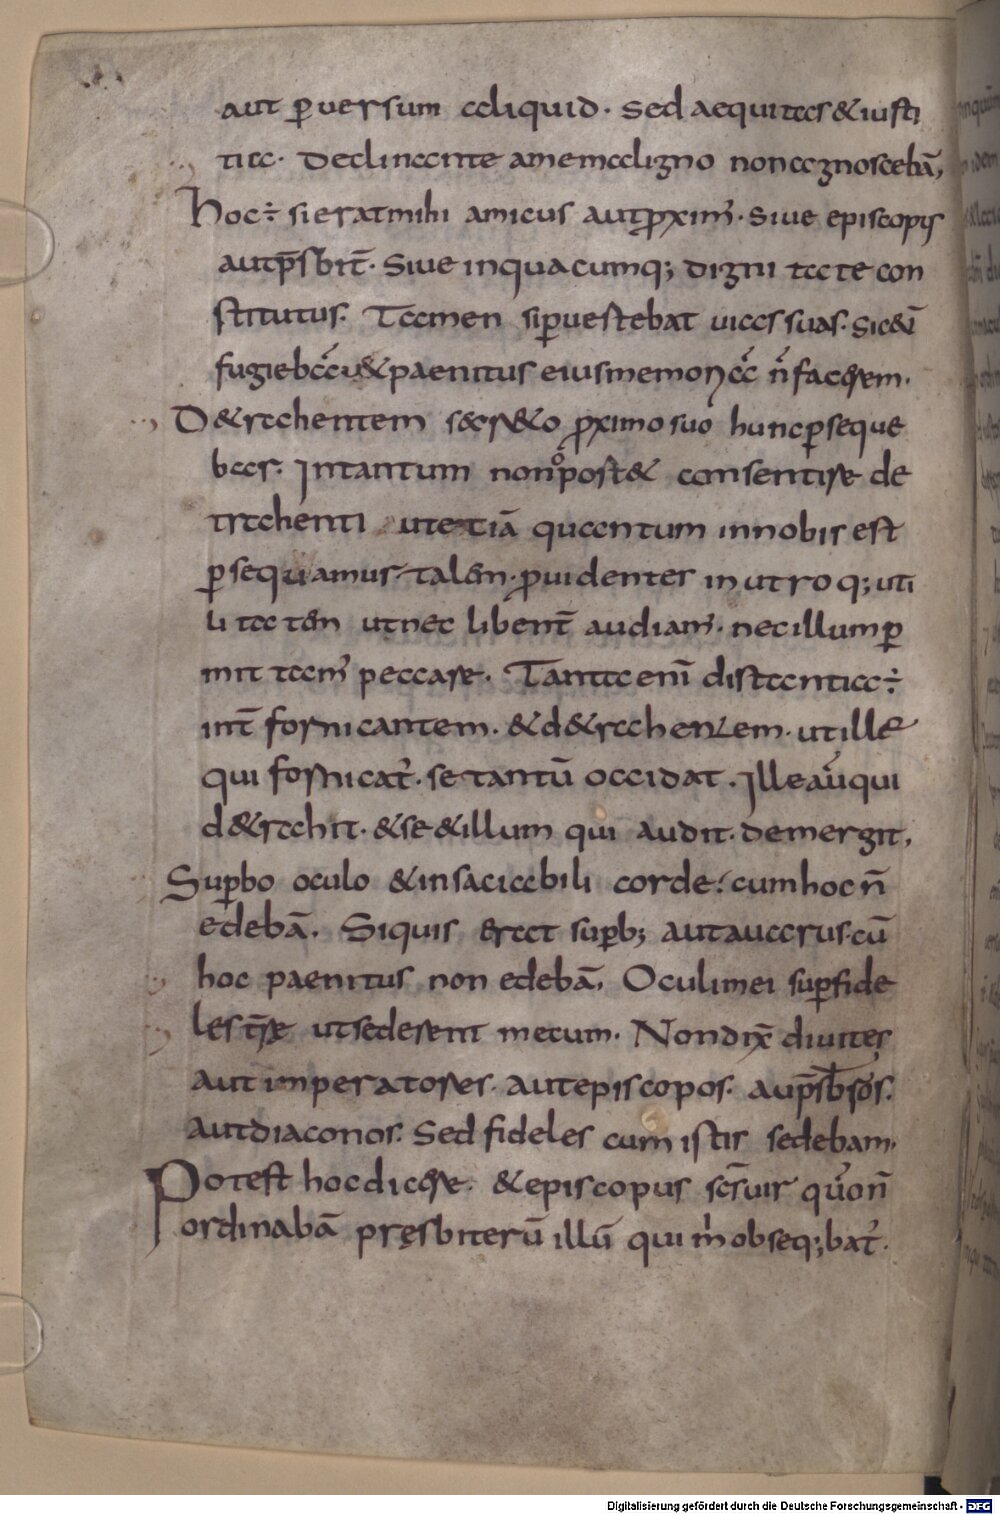 aut ꝑuersum aliquid. sed aequitas & iusti
tia. Declinante a me maligno non cognoscebā,
Hoc ÷ si erat mihi amicus aut ꝓximꝰ. siue episcopus
aut p̄sbit̄. Siue in quacumq; dignitate con
stitutus. Tamen si ꝑuertebat uias suas. sic &iā
fugiebā cū & paenitus eius memoriā n̄ facerem.
D&rahentem secr&o ꝓximo suo hunc ꝑseque
bar. Intantum non post& consentire de
trahenti ut etiā quantum in nobis est
ꝑsequamur talem. ꝓuidentes in utroq; uti
litatem ut nec libent̄ audiamꝰ. nec illum ꝑ
mittamꝰ peccare. Tanta enī distantia ÷
int̄ fornicantem. & d&rahentem. ut ille
qui fornicat᷑. se tantū occidat. Ille au᷑ qui
d&rahit. & se & illum qui audit. demergit,
Suꝑbo oculo & insaciabili corde. cum hoc n̄
edebā. Siquis erat suꝑb; aut auarus. cū
hoc paenitus non edebā, Oculi mei suꝑ fide
les t̄rae ut sederent mecum. Non dix̄ diuites
aut imperatores. aut episcopos. au p̄sb̄ros.
aut diaconos. Sed fideles cum istis sedebam,
Potest hoc dicere. & episcopus sc̄s uir qu̓o n̄
ordinabā pręsbiterū illū qui m̓ obseq;bat᷑.
Digitalisierung gefördert durch die Deutsche Forschungsgemeinschaft - DFG